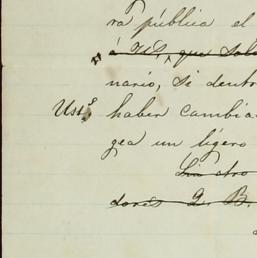 ra pública el
á Vds, que solo
nario, si dentr
Ust.º haber cambia
gea un ligero
Sin otro
dores Q. B.